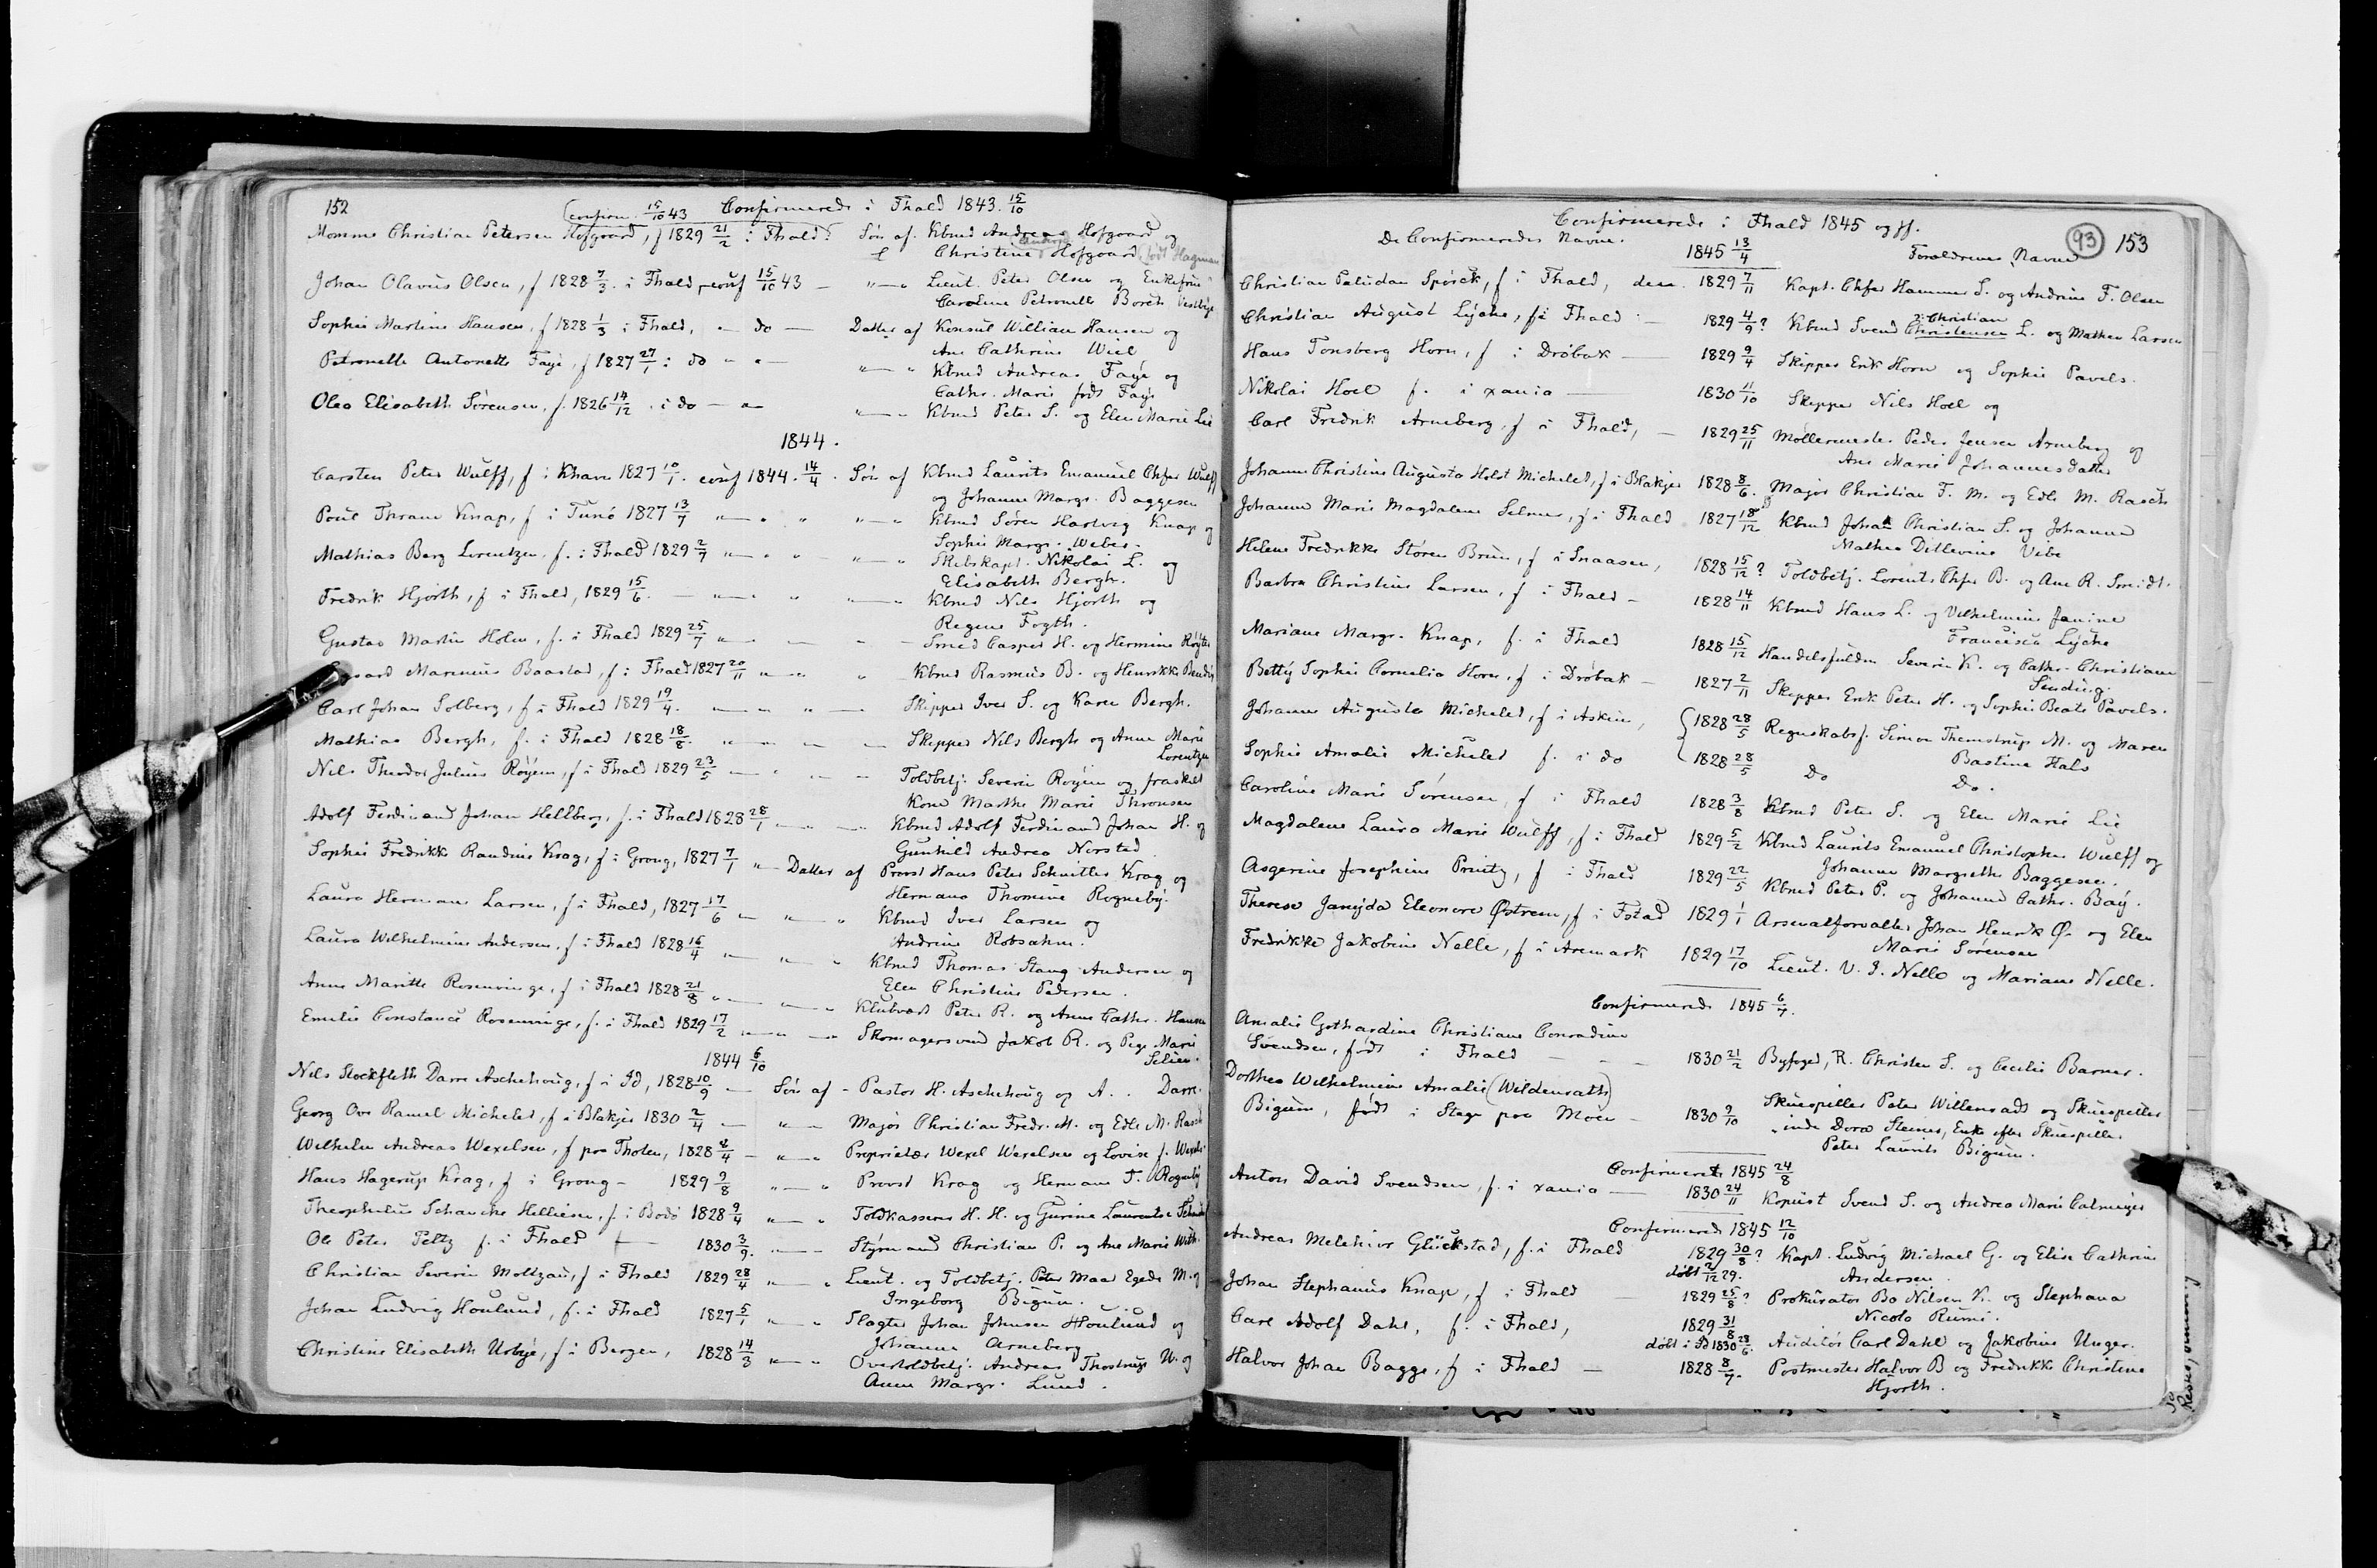 152
Confirmerede i Fhald 1843. 15/10
(confirm. 15/10 43
Momme Christian Petersen Hofgaard, f 1829 21/2 i Fhald? Søn af. Kbmd Andreas Hofgaard og
Christine Hofgaard (født Hagman
Johan Olavus Olsen, f 1828 7/3. i Fhald, conf 15/10 43 — "—" Lieut. Peter Olsen og Enkefrue
Caroline Petronelle Borch Vestbye
Sophie Martine Hansen, f 1828 1/3 i Fhald, — do — Datter af Konsul William Hansen og
Ane Cathrine Wiel
Petronelle Antonette Faye, f 1827 27/1 i do " " — "—" Kbmd Andreas Faye og
Cathr. Marie født Faye
Olea Elisabeth Sørensen, f. 1826 14/12. i do — " — "—" Kbmd Peter S. og Elen Marie Lie
1844.
Carsten Peter Wulff, f i Khavn 1827 10/1. conf 1844. 14/4. Søn af Kbmd Laurits Emanuel Chfer Wulff
og Johanne Margr. Baggesen
Poul Thrane Knap, f i Tunø 1827 13/7 "— " " "—" Kbmd Søren Hartvig Knap og
Sophie Margr. Weber.
Mathias Berg Lorentzen, f. i Fhald 1829 2/7 "— " " "—" Skibskapt. Nikolai L. og
Elisabeth Bergh.
Fredrik Hjorth, f i Fhald, 1829 15/6. — "— " "—" Kbmd Nils Hjorth og
Regine Fogth.
Gustav Martin Holm, f. i Fhald 1829 25/7 "— — " — Smed Casper H. og Hermine
Marinius Baastad, f i Fhald 1827 20/11 "— " " Kbmd Rasmus B. og Henrikke
Carl Johan Solberg, f i Fhald 1829 19/4. — " " — Skipper Iver S. og Karen Bergh.
Mathias Bergh, f. i Fhald 1828 18/8. "— — — Skipper Nils Bergh og Anne Marie
Lorentzen
Nils Theodor Julius Røyem, f i Fhald 1829 23/5 — " — " Toldbetj. Severin Røyem og fraskilt
Kone Marthe Marie Thronsen
Adolf Ferdinand Johan Hellberg, f. i Fhald 1828 28/1 — " — " Kbmd Adolf Ferdinand Johan H. og
Gunhild Andrea Norstad
Sophie Fredrikke Randine Krag, f i Grong, 1827 7/1 "— Datter af Provst Hans Peter Schnitler Krag og
Hermana Thomine Rogneby.
Laura Hermana Larsen, f i Fhald, 1827 17/6 — " — " Kbmd Iver Larsen og
Andrine Robsahm.
Laura Wilhelmine Andersen, f i Fhald 1828 16/4 "— "— " Kbmd Thomas Stang Andersen og
Elen Christine Pedersen.
Anne Maritte Rosenvinge, f i Fhald 1828 21/8 "— "— " Klubvært Peter R. og Anne Cathr. Hansen
Emilie Constance Rosenvinge, f. i Fhald 1829 17/2 "— — " Skomagersvend Jakob R. og Marie
1844 6/10
Nils Stockfleth Darre Aschehoug, f i Id, 1828 10/9 — Søn af — Pastor H. Aschehoug og A. . Darre.
Georg Ove Ramel Michelet, f i Blakjer 1830 2/4 — "— Major Christian Fredr. M. og Edle M. Rasch
Wilhelm Andreas Wexelsen, f paa Thoten, 1828 4/4 — "—" Proprietær Wexel Wexelsen og Lovise f. Wexels
Hans Hagerup Krag, f i Grong — 1829 9/8 "—" Provst Krag og Hermana T. Rogneby
Theophilus Schanche Helliesen, f. i Bodø 1828 9/4 "—" Toldkasserer H. H. og Gurine Laurentse
Ole Peter Peltz f. i Fhald — 1830 3/9. "—" Styrmand Christian P. og Ane Marie With.
Christian Severin Moltzau, f i Fhald 1829 28/4 "—" Lieut. og Toldbetj. Peter Maar Egede M. og
Ingeborg Bigum.
Johan Ludvig Houlund, f. i Fhald 1827 5/1 "—" Slagter Johan Johnsen Houlund og
Johanne Arneberg
Christine Elisabeth Urbye, f i Bergen, 1828 14/3 "—" Overtoldbetj. Andreas Thostrup U. og
Anne Margr. Lund.
Confirmerede i Fhald 1845 og ff.
93 153
De Confirmeredes Navne. 1845 13/4 Forældrenes Navne
Christian Paludan Spørck, f i Fhald, den 1829 7/11 Kapt. Chfer Hammer S. og Andrine F. Olsen
Christian August Lyche, f i Fhald — 1829 4/9? Kbmd Svend Christensen L. og Mathea Larsen
Christian
Hans Tonsberg Horn, f i Drøbak — 1829 9/4 Skipper Erik Horn og Sophie Pavels.
Nikolai Hoel f. i xania — 1830 11/10 Skipper Nils Hoel og
Carl Fredrik Arneberg, f i Fhald, — 1829 25/11 Møllermester Peder Jensen Arneberg og
Ane Marie Johannesdatter
Johanne Christine Augusta Holst Michelet, f i Blakjer 1828 8/6. Major Christian F. M. og Edle M. Rasch
Johanne Marie Magdalene Selmer, f i Fhald 1827 18/12 Kbmd Johan Christian S. og Johanne
Mathea Ditlevine Vibe
Helene Fredrikke Støren Brun, f i Snaasen, 1828 15/12? Toldbetj. Lorents Chfer B. og Ane R. Smidt.
Barbra Christine Larsen, f i Fhald — 1828 14/11 Kbmd Hans L. og Vilhelmine Janine
Francisca Lyche
Mariane Margr. Knap, f. i Fhald 1828 15/12 Handelsfuldm Severin K. og Cathr. Christiane
Sinding.
Betty Sophie Cornelia Horn, f i Drøbak — 1827 2/11 Skipper Erik Peter H. og Sophie Beate Pavels.
Johanne Augusta Michelet, f i Askim, 1828 28/5 Regnskabsf. Simon Themstrup M. og Maren
Bastine Hals
Sophie Amalie Michelet f. i do 1828 28/5 Do Do.
Caroline Marie Sørensen, f i Fhald 1828 3/8 Kbmd Peter S. og Elen Marie Lie
Magdalene Laura Marie Wulff, f i Fhald 1829 5/2 Kbmd Laurits Emanuel Christopher Wulff og
Johanne Margrethe Baggesen.
Asgerine Josephine Printz, f i Fhald 1829 22/5 Kbmd Peter P. og Johanne Cathr. Bay.
Therese Janejda Eleonore Østrem, f i Fstad 1829 1/1 Arsenalforvalter Johan Henrik Ø. og Elen
Marie Sørensen
Fredrikke Jakobine Nelle, f i Aremark 1829 17/10 Lieut. V. J. Nelle og Mariane Nelle.
Confirmerede 1845 6/7.
Amalie Gothardine Christiane Conradine
Svendsen, født i Fhald — — 1830 21/2 Byfoged, R. Christen S. og Cecilie Barner.
Dorthea Wilhelmine Amalie (Wildenrath)
Bigum, født i Stege paa Møen — 1830 9/10 Skuespiller Peter Willenradt og Skuespiller
inde Dora Steiner, Enke efter Skuespiller
Peter Laurits Bigum.
Confirmeret 1845 24/8
Anton David Svendsen, f. i xania — 1830 24/11 Kopiist Svend S. og Andrea Marie Calmeyer
Confirmerede 1845 12/10
Andreas Melchior Glückstad, f. i Fhald 1829 30/8? Kapt. Ludvig Michael G. og Elise Cathrine
døbt 2/12 29. Andersen.
Johan Stephanus Knap, f i Fhald — 1829 25/8? Prokurator Bo Nilsen K. og Stephana
Nicolo Rumi.
Carl Adolf Dahl, f. i Fhald, 1829 31/8
døbt i Id 1830 28/6. Auditør Carl Dahl og Jakobine Unger.
Halvor Johan Bagge, f i Fhald — 1828 8/7. Postmester Halvor B og Fredrikke Christine
Hjorth.